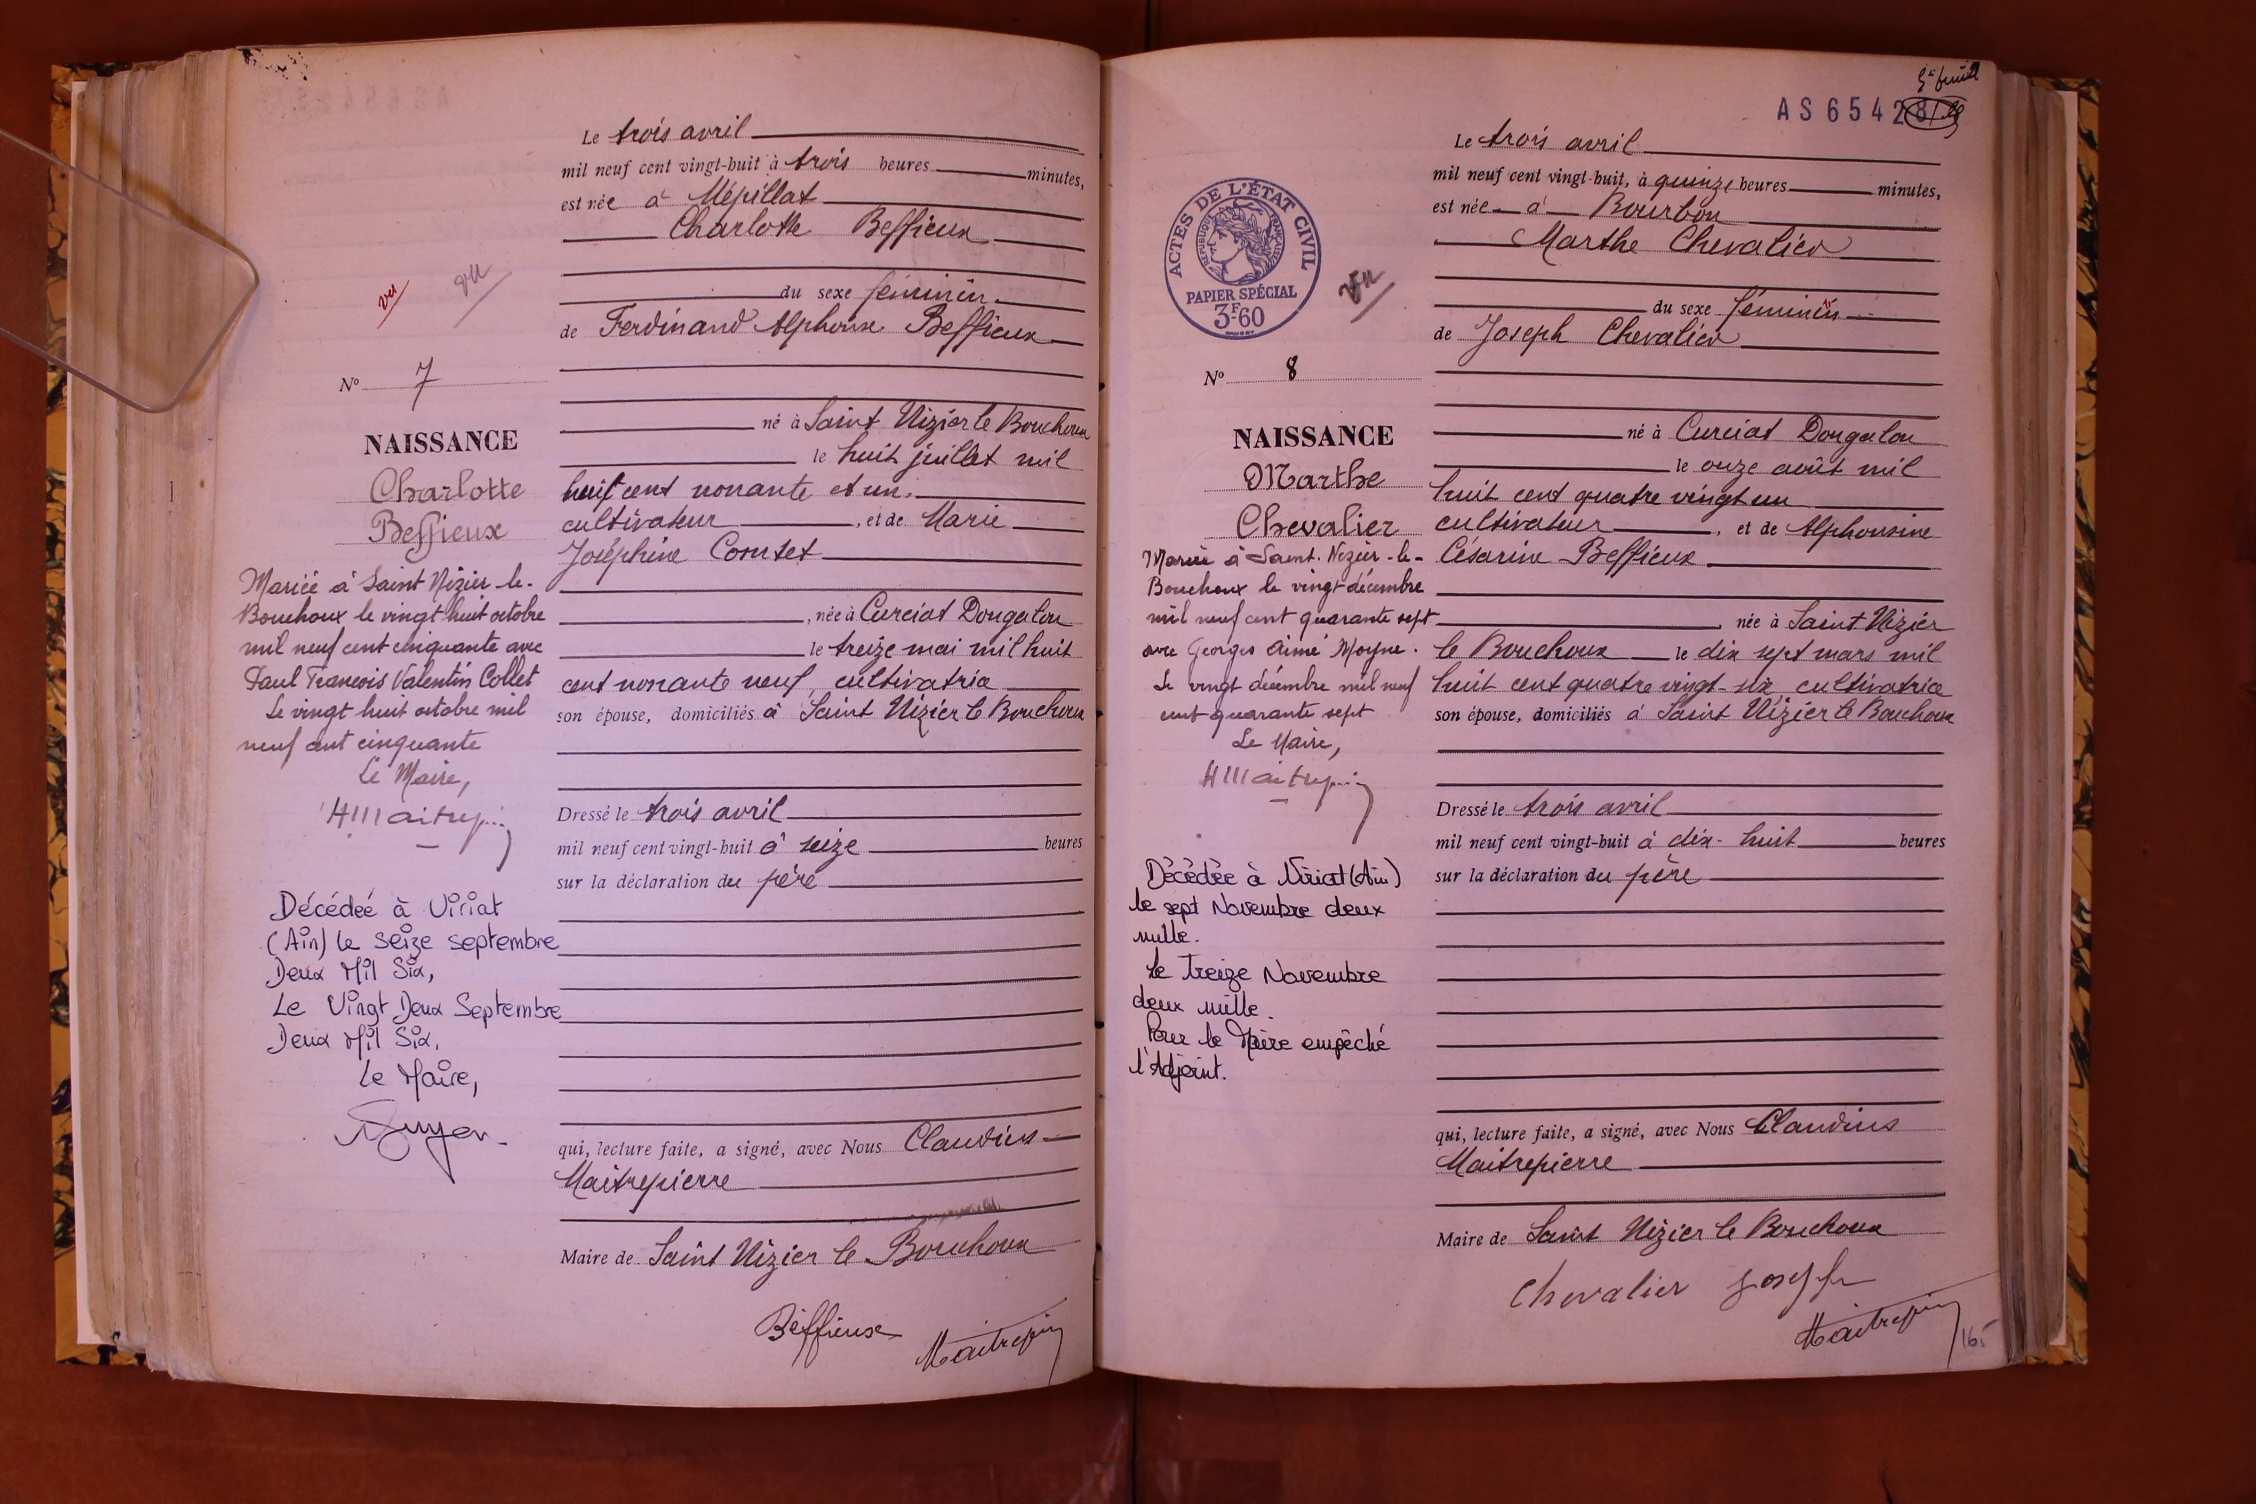 Le trois avril
mil neuf cent vingt-huit à trois heures minutes,
est née à Mépillat
Charlotte Beffieux
du sexe féminin
de Ferdinand Alphonse Beffieux
né à Saint Nizier le Bouchoux
le huit juillet mil
huit cent nonante et un.
cultivateur, et de Marie
Joséphine Comtet
, née à Curciat Dongalon
le treize mai mil huit
cent nonante neuf, cultivatrice
son épouse, domiciliés à Saint Nizier le Bouchoux
Dressé le trois avril
mil neuf cent vingt-huit à seize heures
sur la déclaration du père
qui, lecture faite, a signé, avec Nous Claudius
Maitrepierre
Maire de Saint Nizier le Bouchoux
Beffieux
Maitrepierre
vu vu
N° 7
NAISSANCE
Charlotte
Beffieux
Mariée à Saint Nizier-le-
Bouchoux le vingt huit octobre
mil neuf cent cinquante avec
Paul François Valentin Collet
Le vingt huit octobre mil
neuf cent cinquante
Le Maire,
Décédée à Viriat
(Ain) le seize septembre
Deux Mil Six,
Le Vingt Deux Septembre
Deux Mil Six.
Le Maire,
5e feuillet
AS 6542
Le trois avril
mil neuf cent vingt-huit, à quinze heures minutes,
est née à Bourbon
Marthe Chevalier
du sexe féminin
de Joseph Chevalier
né à Curciat Dongalon
le onze août mil
huit cent quatre vingt un
cultivateur, et de Alphonsine
Césarine Beffieux
, née à Saint Nizier
le Bouchoux le dix sept mars mil
huit cent quatre vingt six, cultivatrice
son épouse, domiciliés à Saint Nizier le Bouchoux
Dressé le trois avril
mil neuf cent vingt-huit à dix-huit heures
sur la déclaration du père
qui, lecture faite, a signé, avec Nous Claudius
Maitrepierre
Maire de Saint Nizier le Bouchoux
Chevalier Joseph
Maitrepierre
165
ACTES DE L'ÉTAT CIVIL
RÉPUBLIQUE FRANÇAISE
PAPIER SPÉCIAL
3F60
vu
N° 8
NAISSANCE
Marthe
Chevalier
Mariée à Saint-Nizier-le-
Bouchoux le vingt décembre
mil neuf cent quarante sept
avec Georges Aimé Moyne.
Le vingt décembre mil neuf
cent quarante sept
Le Maire,
Décédée à Viriat (Ain)
le sept Novembre deux
mille.
Le treize Novembre
deux mille.
Pour le Maire empêché
l'Adjoint.